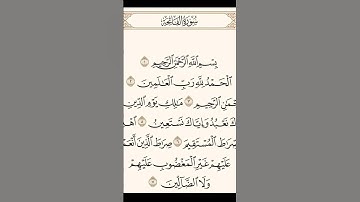 سُورَةُ الْفَاتِحَةِ
بِسْمِ اللَّهِ الرَّحْمَٰنِ الرَّحِيمِ ١
الْحَمْدُ لِلَّهِ رَبِّ الْعَالَمِينَ ٢
الرَّحِيمِ ٣ مَالِكِ يَوْمِ الدِّينِ
نَعْبُدُ وَإِيَّاكَ نَسْتَعِينُ ٥
الْمُسْتَقِيمَ ٦ صِرَاطَ الَّذِينَ
عَلَيْهِمْ غَيْرِ الْمَغْضُوبِ عَلَيْهِمْ
وَلَا الضَّالِّينَ ٧